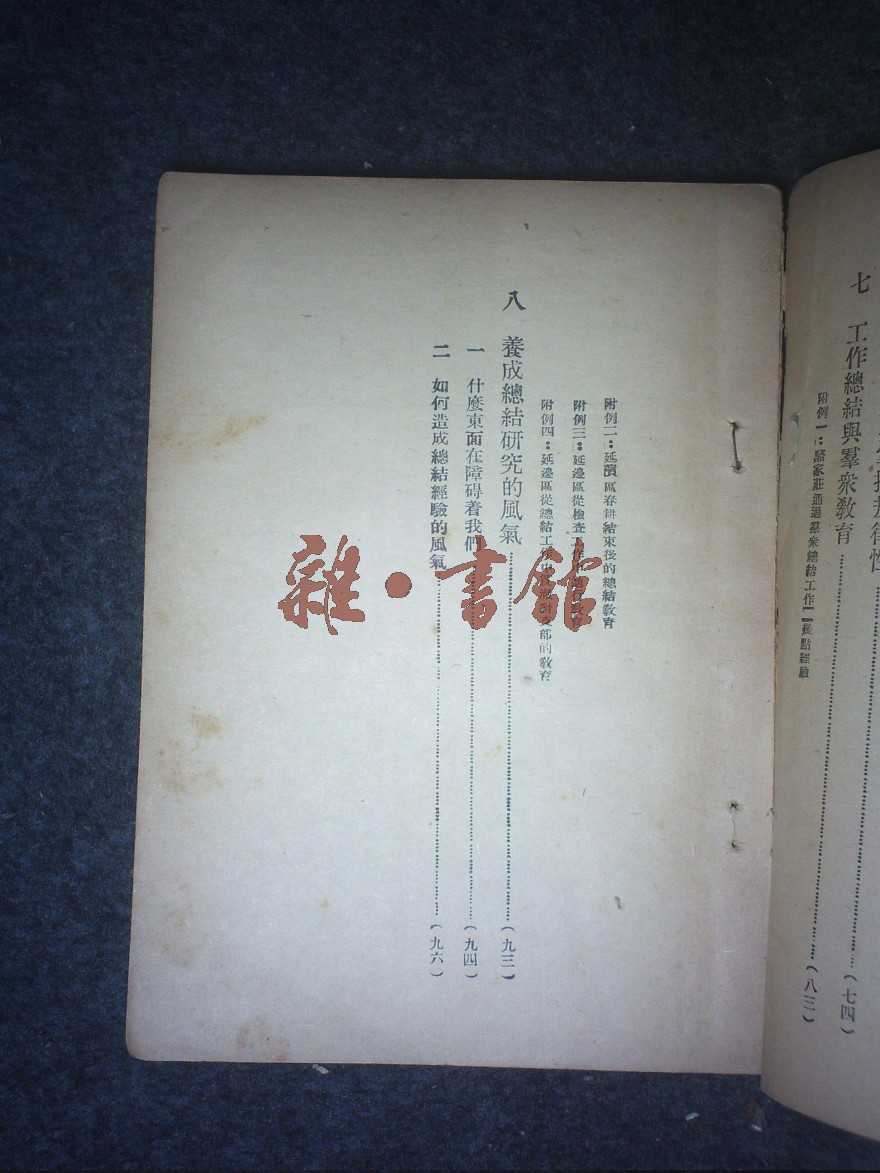 七 工作總結與羣衆教育……(七四)
附例一：駱家莊通過羣衆總結工作……(八三)
附例二：延濱區春耕結束後的總結教育
附例三：延邊區從檢查工作中進行教育
附例四：延邊區從總結工作中支部的教育
八 養成總結研究的風氣……(九三)
一 什麼東面在障碍着我們……(九四)
二 如何造成總結經驗的風氣……(九六)
雜·書館